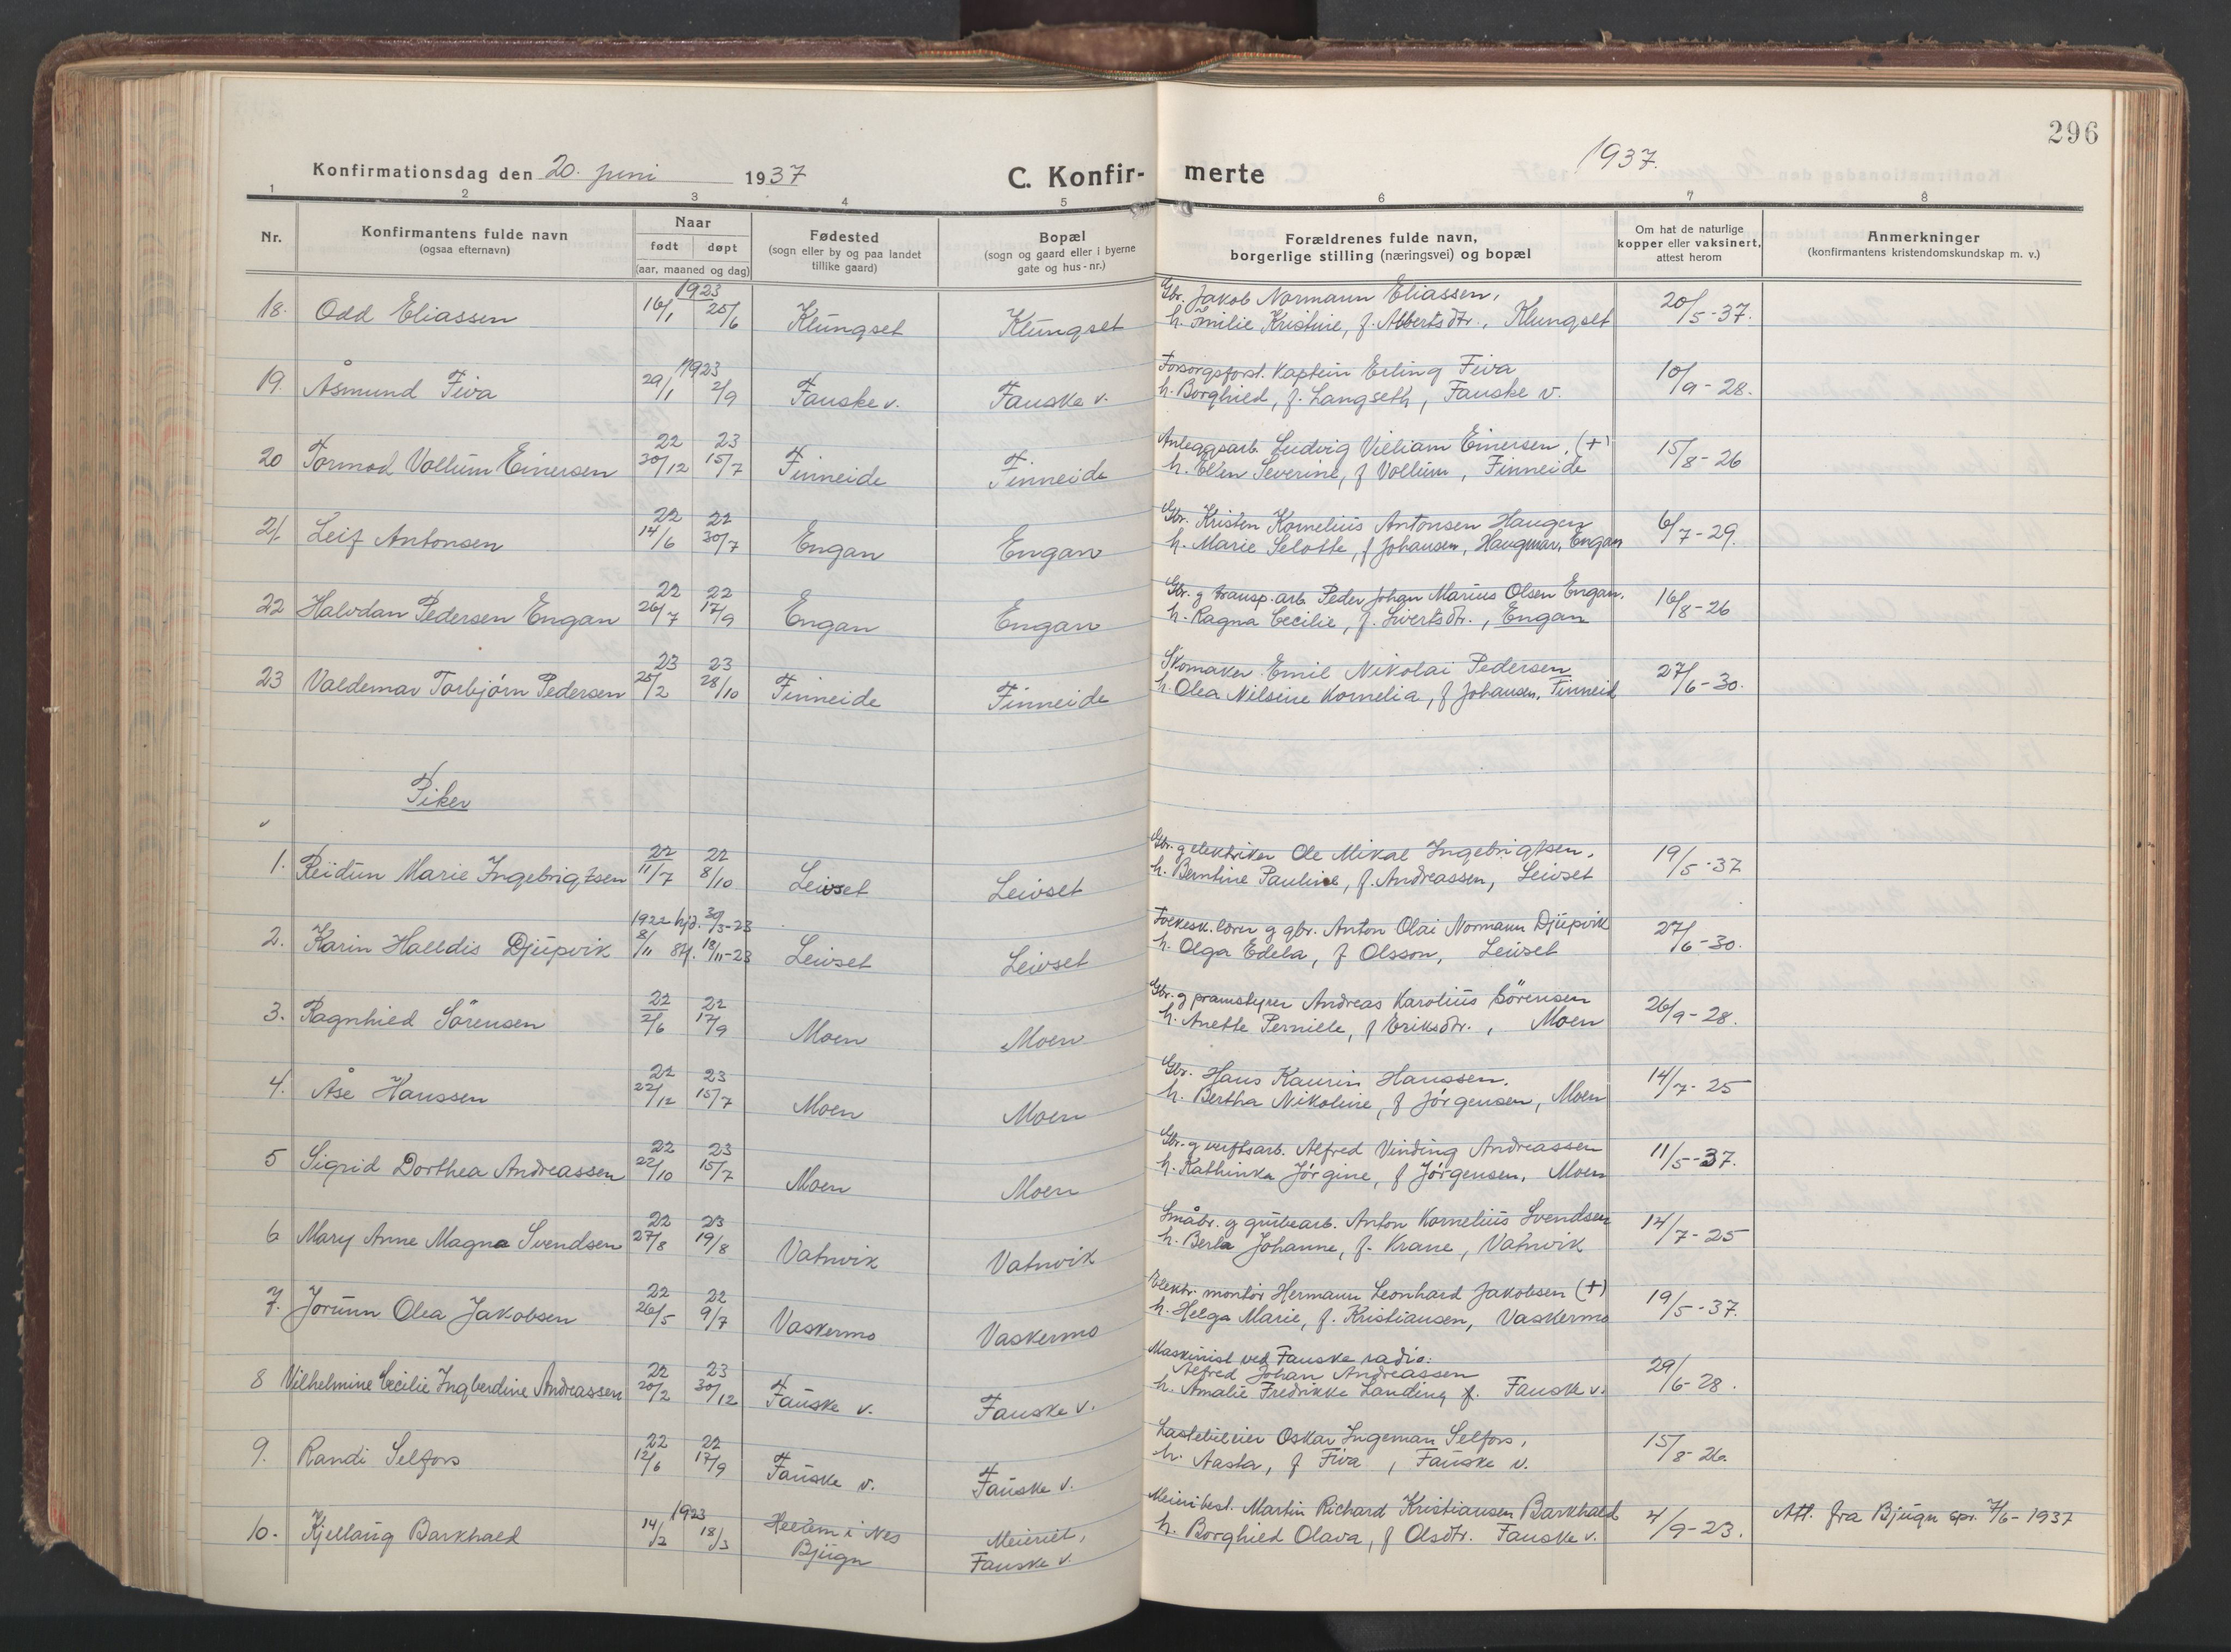 296
Konfirmationsdag den 20. juni 1937 C. Konfir- merte 1937.
1 2 3 4 5 6 7 8
Nr.
Konfirmantens fulde navn
(ogsaa efternavn)
Naar
født døpt
(aar, maaned og dag)
Fødested
(sogn eller by og paa landet
tillike gaard)
Bopæl
(sogn og gaard eller i byerne
gate og hus-nr.)
Forældrenes fulde navn,
borgerlige stilling (næringsvei) og bopæl
Om hat de naturlige
kopper eller vaksinert,
attest herom
Anmerkninger
(konfirmantens kristendomskundskap m. v.)
1923 Gbr. Jakob Normann Eliassen,
18. Odd Eliassen 16/1 25/6 Klungset Klungset h. Emilie Kristine, f. Albertsdtr., Klungset 20/5-37.
1923 Forsorgsforst. kaptein Erling Fiva
19. Åsmund Fiva 29/1 2/9 Fauske v. Fauske v. h. Borghild, f. Langseth, Fauske v. 10/9-28.
22 23 Anleggsarb. Ludvig Villiam Einersen, (+)
20 Tormod Vollum Einersen 30/12 15/7 Finneide Finneide h. Ellen Severine, f Vollum, Finneide 15/8-26
22 22 Gbr. Kristen Kornelius Antonsen Haugen
21. Leif Antonsen 14/6 30/7 Engan Engan h. Marie Selotte, f Johansen, Haugmar, Engan 6/7-29.
22 22 Gbr. g transp.arb. Peder Johan Marius Olsen Engan,
22 Halvdan Pedersen Engan 26/7 17/9 Engan Engan h. Ragna Cecilie, f. Sivertsdtr., Engan 16/8-26
23 23 Skomaker Emil Nikolai Pedersen
23 Valdemar Torbjørn Pedersen 25/2 28/10 Finneide Finneide h. Olea Nilsine Kornelia, f Johansen, Finneid 27/6-30.
Piker
22 22 Gbr. g elektriker Ole Mikal Ingebrigtsen,
1. Reidun Marie Ingebrigtsen 11/7 8/10 Leivset Leivset h. Berntine Pauline, f. Andreassen, Leivset 19/5-37
1922 hjd. 30/3-23 Folkesk.lærer g gbr. Anton Olai Normann Djupvik
2. Karin Halldis Djupvik 8/11 Stf. 18/11-23 Leivset Leivset h. Olga Edela, f Olsson, Leivset 27/6-30.
22 22 Gbr. g pramstyrer Andreas Karolius Sörensen
3. Ragnhild Sörensen 2/6 17/9 Moen Moen h. Anette Pernille, f Eriksdtr., Moen 26/9-28.
22 23 Gbr. Hans Kaurin Hanssen,
4. Åse Hanssen 22/12 15/7 Moen Moen h. Bertha Nikoline, f Jørgensen, Moen 14/7-25
22 23 Gbr. g verftsarb. Alfred Vinding Andreassen
5 Sigrid Dorthea Andreassen 22/10 15/7 Moen Moen h. Kathinka Jørgine, f Jørgensen, Moen 11/5-37.
22 23 Småbr. g grubearb. Anton Kornelius Svendsen
6 Mary Anne Magna Svendsen 27/8 19/8 Vatnvik Vatnvik h. Berla Johanne, f. Krane, Vatnvik 14/7-25
22 22 Elektr. montör Hermann Leonhard Jakobsen (+)
7. Jorunn Olea Jakobsen 26/5 9/7 Vaskermo Vaskermo h. Helga Marie, f. Kristiansen, Vaskermo 19/5-37.
Maskinist ved Fauske radio:
22 23 Alfred Johan Andreassen
8 Vilhelmine Cecilie Ingberdine Andreassen 20/2 30/12 Fauske v. Fauske v. h. Amalie Fredrikke Landing f. Fauske v. 29/6-28.
22 22 Lastebileier Oskar Ingeman Selfors,
9. Randi Selfors 12/6 17/9 Fauske v. Fauske v. h. Aasta, f Fiva, Fauske v. 15/8-26.
1923 Meieribest. Martin Richard Kristiansen Barkhald
10. Kjellaug Barkhald 14/2 18/3 Hellem i Nes Meieriet, h. Borghild Olava, f Olsdtr. Fauske v. 4/9-23. Att. fra Bjugn spr. 7/6-1937
Bjugn Fauske v.